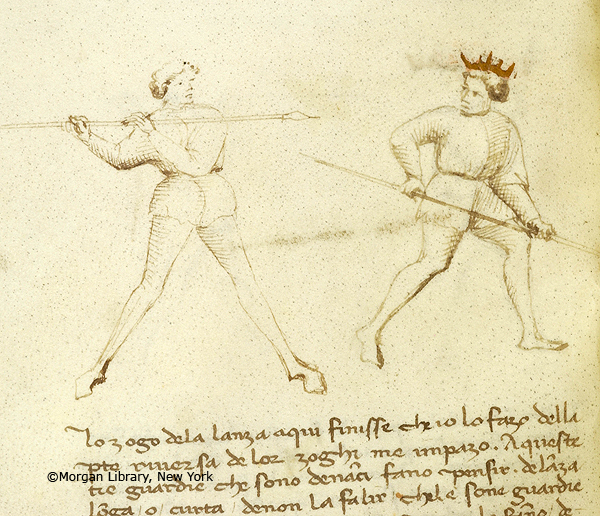 lo zogo dela lanza aqui finisse che io lo fazo della
pte riversa de lor zoghi me impazo. Aqueste
tre guardie che sono denanci fano pensir. de lanza
longa o curta denon la falir chel e sone guardie
©Morgan Library, New York